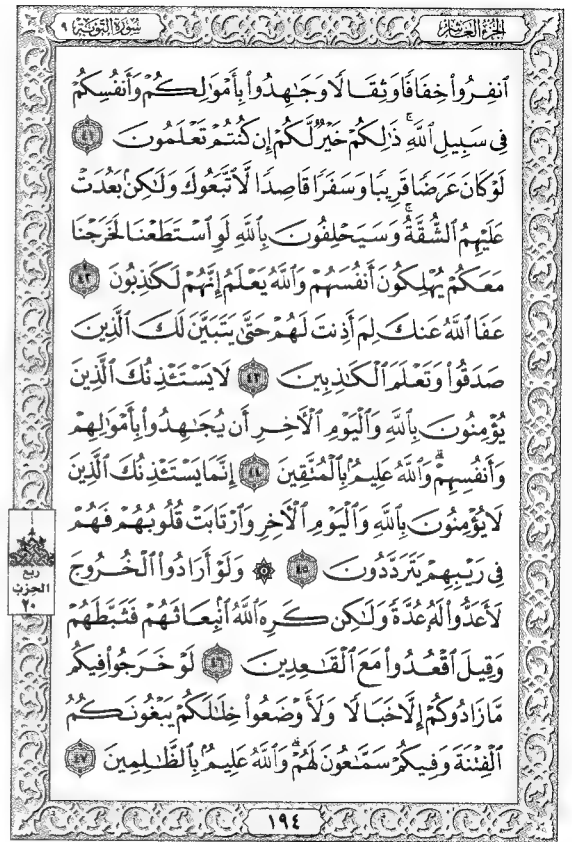 الجزء العاشر
سورة التوبة ٩
ٱنفِرُوا۟ خِفَافًا وَثِقَالًا وَجَٰهِدُوا۟ بِأَمْوَٰلِكُمْ وَأَنفُسِكُمْ
فِى سَبِيلِ ٱللَّهِ ۚ ذَٰلِكُمْ خَيْرٌ لَّكُمْ إِن كُنتُمْ تَعْلَمُونَ ٤١
لَوْ كَانَ عَرَضًا قَرِيبًا وَسَفَرًا قَاصِدًا لَّٱتَّبَعُوكَ وَلَٰكِنۢ بَعُدَتْ
عَلَيْهِمُ ٱلشُّقَّةُ ۚ وَسَيَحْلِفُونَ بِٱللَّهِ لَوِ ٱسْتَطَعْنَا لَخَرَجْنَا
مَعَكُمْ يُهْلِكُونَ أَنفُسَهُمْ وَٱللَّهُ يَعْلَمُ إِنَّهُمْ لَكَٰذِبُونَ ٤٢
عَفَا ٱللَّهُ عَنكَ لِمَ أَذِنتَ لَهُمْ حَتَّىٰ يَتَبَيَّنَ لَكَ ٱلَّذِينَ
صَدَقُوا۟ وَتَعْلَمَ ٱلْكَٰذِبِينَ ٤٣ لَا يَسْتَـْٔذِنُكَ ٱلَّذِينَ
يُؤْمِنُونَ بِٱللَّهِ وَٱلْيَوْمِ ٱلْءَاخِرِ أَن يُجَٰهِدُوا۟ بِأَمْوَٰلِهِمْ
وَأَنفُسِهِمْ ۗ وَٱللَّهُ عَلِيمٌۢ بِٱلْمُتَّقِينَ ٤٤ إِنَّمَا يَسْتَـْٔذِنُكَ ٱلَّذِينَ
لَا يُؤْمِنُونَ بِٱللَّهِ وَٱلْيَوْمِ ٱلْءَاخِرِ وَٱرْتَابَتْ قُلُوبُهُمْ فَهُمْ
فِى رَيْبِهِمْ يَتَرَدَّدُونَ ٤٥ ۞ وَلَوْ أَرَادُوا۟ ٱلْخُرُوجَ
لَأَعَدُّوا۟ لَهُۥ عُدَّةً وَلَٰكِن كَرِهَ ٱللَّهُ ٱنۢبِعَاثَهُمْ فَثَبَّطَهُمْ
وَقِيلَ ٱقْعُدُوا۟ مَعَ ٱلْقَٰعِدِينَ ٤٦ لَوْ خَرَجُوا۟ فِيكُم
مَّا زَادُوكُمْ إِلَّا خَبَالًا وَلَأَوْضَعُوا۟ خِلَٰلَكُمْ يَبْغُونَكُمُ
ٱلْفِتْنَةَ وَفِيكُمْ سَمَّٰعُونَ لَهُمْ ۗ وَٱللَّهُ عَلِيمٌۢ بِٱلظَّٰلِمِينَ ٤٧
ربع
الحزب
٢٠
١٩٤